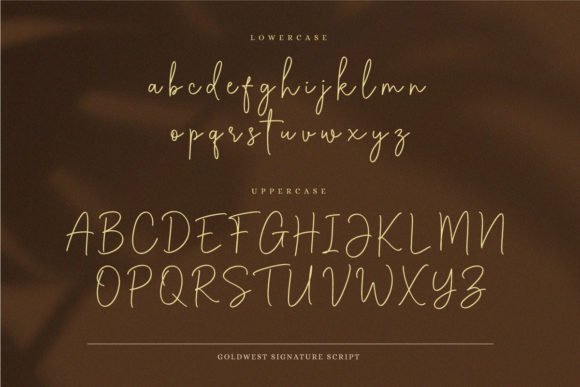 LOWERCASE
abcdefghijklmn
opqrstuvwxyz
UPPERCASE
ABCDEFGHIJKLMN
OPQRSTUVWXYZ
GOLDWEST SIGNATURE SCRIPT